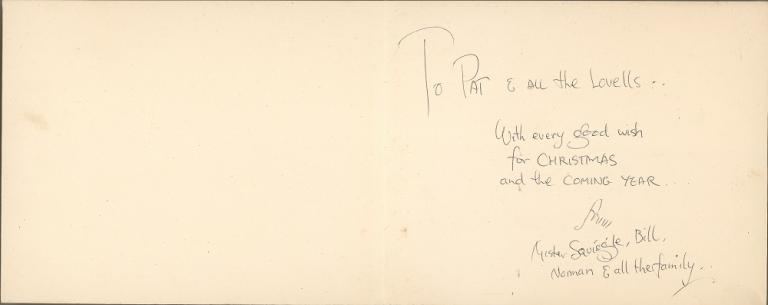 To PAT & ALL the Lovells ..
With every good wish
for CHRISTMAS
and the COMING YEAR ...
from
Mister Squiggle, Bill,
Norman & all the family ..